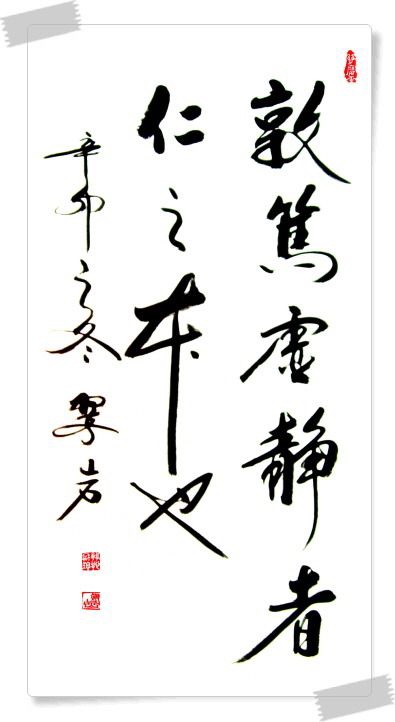 敦篤虛靜者
仁之本也
辛卯之冬 翠岩